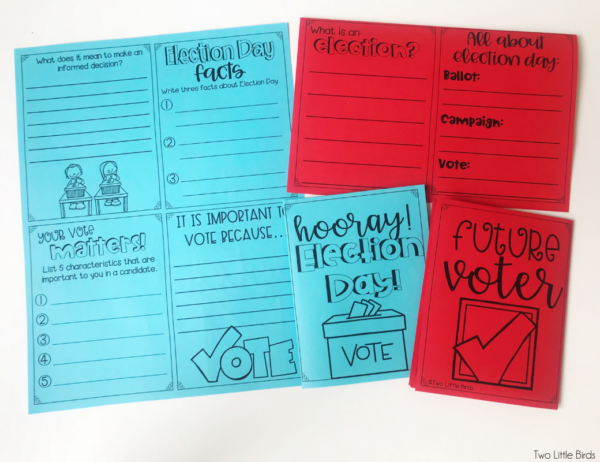 What does it mean to make an
informed decision?
Election Day
facts
Write three facts about Election Day
1
2
3
your vote
matters!
List 5 characteristics that are
important to you in a candidate.
1
2
3
4
5
IT IS IMPORTANT TO
VOTE BECAUSE...
VOTE
What is an
election?
All about
election day:
Ballot:
Campaign:
Vote:
hooray!
Election
Day!
VOTE
future
voter
©Two Little Birds
Two Little Birds